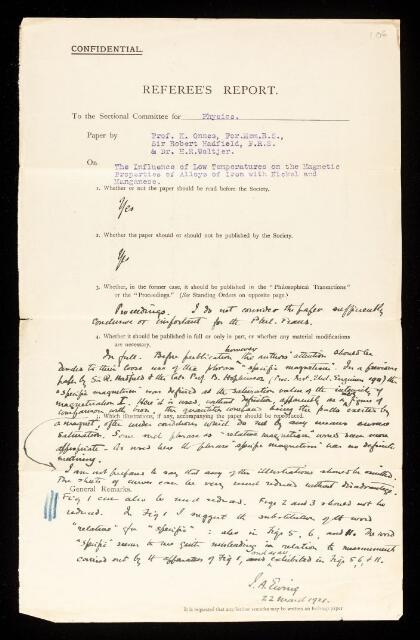 106
CONFIDENTIAL.
REFEREE'S REPORT.
To the Sectional Committee for Physics.
Paper by Prof. K. Onnes, For.Mem.R.S.,
Sir Robert Hadfield, F.R.S.
& Dr. H.R. Woltjer.
On The Influence of Low Temperatures on the Magnetic
Properties of Alloys of Iron with Nickel and
Manganese.
1. Whether or not the paper should be read before the Society.
Yes
2. Whether the paper should or should not be published by the Society.
Yes
3. Whether, in the former case, it should be published in the "Philosophical Transactions"
or the "Proceedings." (See Standing Orders on opposite page.)
Proceedings. I do not consider the paper sufficiently
conclusive or important for the Phil. Trans.
4. Whether it should be published in full or only in part, or whether any material modifications
are necessary.
In full. Before publication however the authors' attention should be
directed to their loose use of the phrase "specific magnetism". In a previous
paper by Sir R. Hadfield & the late Prof. B. Hopkinson
"specific magnetism" was defined as the saturation value of the intensity of
magnetisation I. Here it is used, without definition, apparently as a figure of
comparison with iron, the quantities compared being the pulls exerted by
5. Which illustrations, if any, accompanying the paper should be reproduced.
a magnet, often under conditions which do not by any means ensure
saturation. Some such phrase as "relative magnetism" would seem more
appropriate. As used here the phrase "specific magnetism" has no definite
meaning.
I am not prepared to say that any of the illustrations should be omitted.
The sheets of curves can be very much reduced without disadvantage.
General Remarks.
Fig 1 can also be much reduced. Figs 2 and 3 should not be
reduced. In Fig 1 I suggest the substitution of the word
"relative" for "specific": also in Figs 5, 6, and 11. The word
"specific" seems to me quite misleading in relation to measurements
carried out by the apparatus of Fig 1, and exhibited in Figs 5, 6 & 11.
J. A. Ewing
22 March 1921.
It is requested that any further remarks may be written on foolscap paper